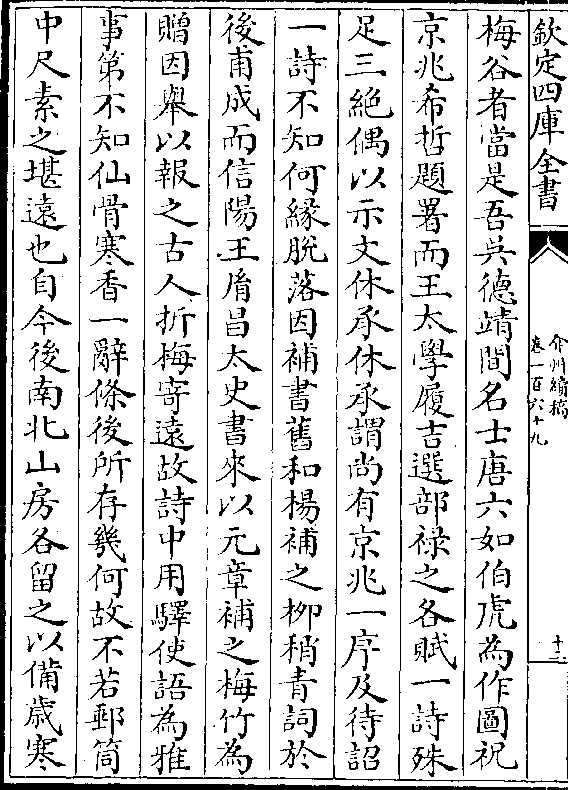 欽定四庫全書
弇州續稿
卷一百六十九
十二
梅谷者當是吾吳德靖間名士唐六如伯虎為作圖祝
京兆希哲題署而王太學履吉選部祿之各賦一詩殊
足三絶偶以示文休承休承謂尚有京兆一序及待詔
一詩不知何縁脱落因補書舊和楊補之柳梢青詞於
後甫成而信陽王𦙍昌太史書來以元章補之梅竹為
贈因舉以報之古人折梅寄遠故詩中用驛使語為雅
事第不知仙骨寒香一辭條後所存幾何故不若郵筒
中尺素之堪遠也自今後南北山房各留之以備歲寒